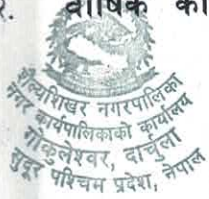 २. वार्षिक का
शैल्यशिखर नगरपालिका
नगर कार्यपालिकाको कार्यालय
गोकुलेश्वर, दार्चुला
सुदूर पश्चिम प्रदेश, नेपाल